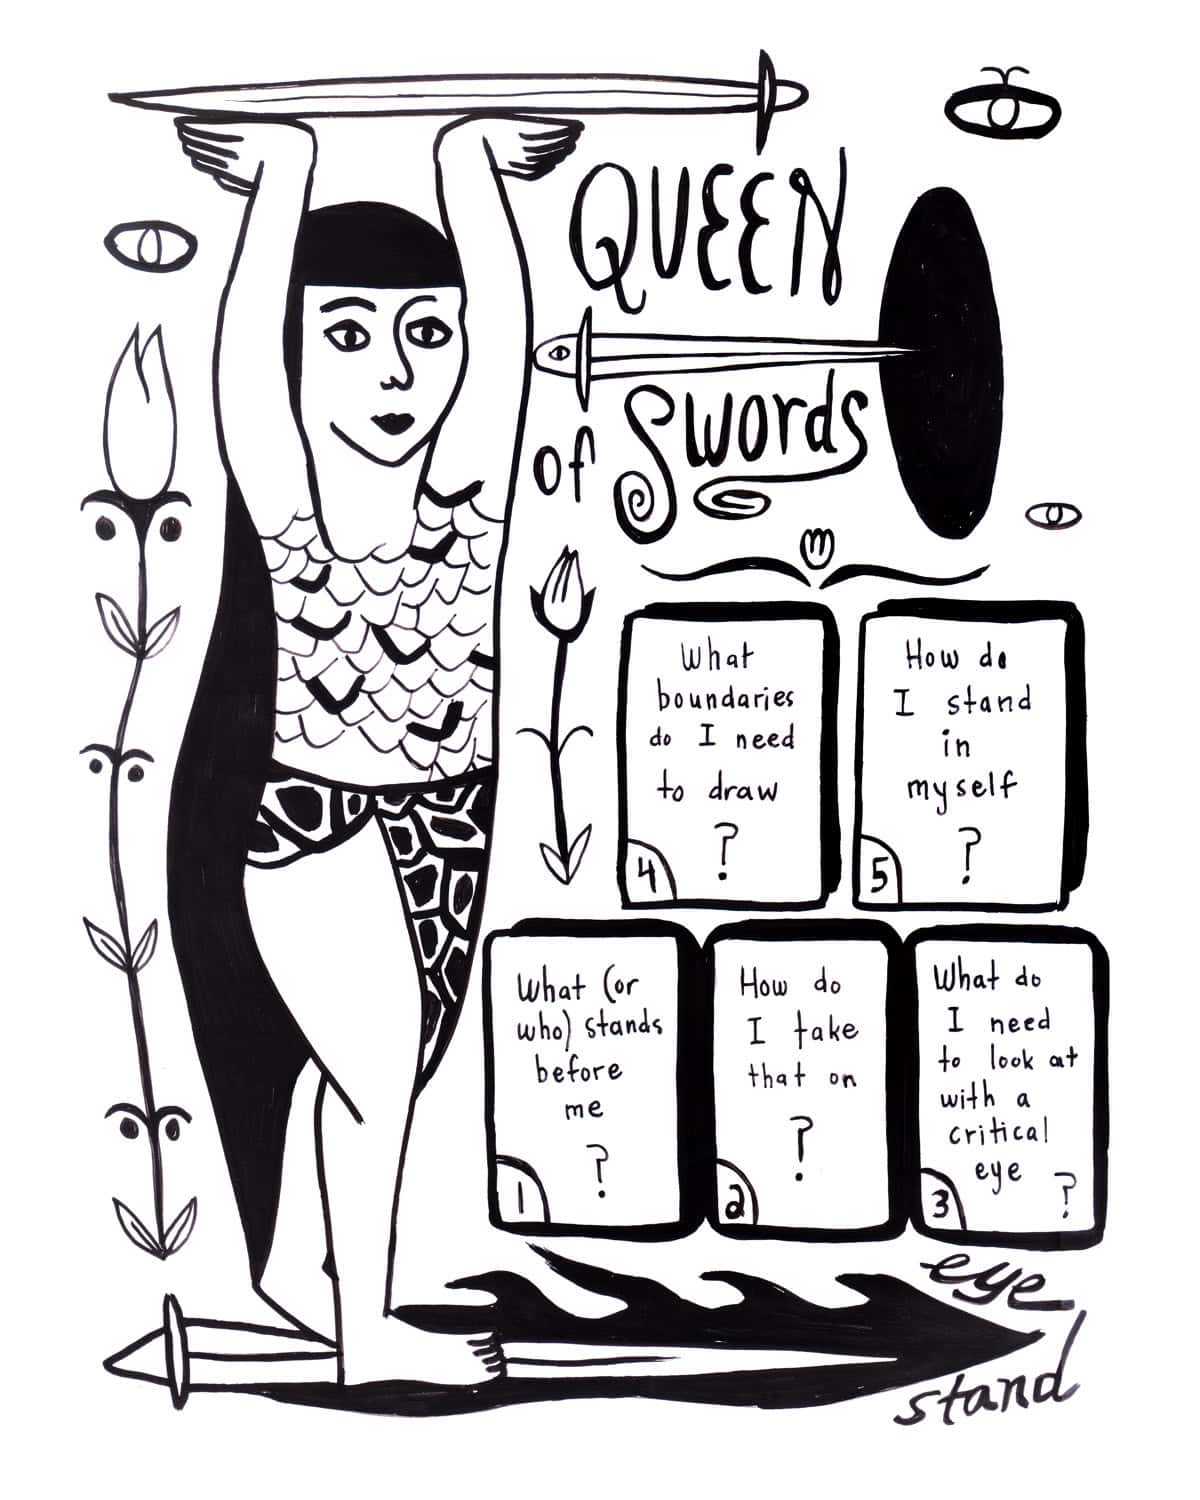 QUEEN
of Swords
What
boundaries
do I need
to draw
?
4
How do
I stand
in
myself
?
5
What (or
who) stands
before
me
?
1
How do
I take
that on
?
2
What do
I need
to look at
with a
critical
eye ?
3
eye
stand